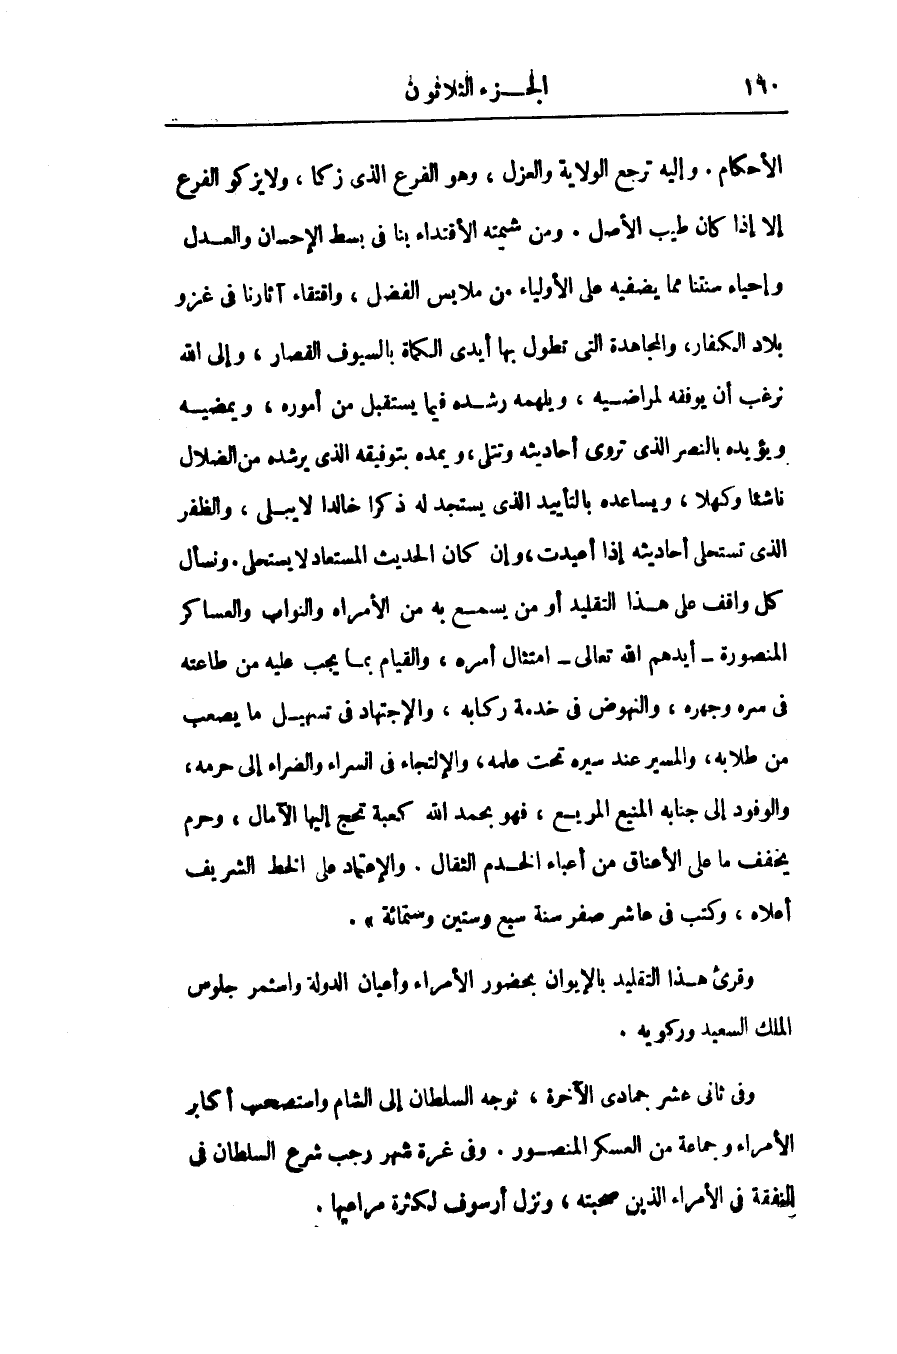 ١٩٠
الجزء الثلاثون
الأحكام . وإليه ترجع الولاية والعزل ، وهو الفرع الذى زكا ، ولا يزكو الفرع
إلا إذا كان طيب الأصل . ومن شيمته الأقتداء بنا فى بسط الإحسان والعدل
وإحياء سنتنا مما يضفيه على الأولياء من ملابس الفضل ، واقتفاء آثارنا فى غزو
بلاد الكفار، والمجاهدة التى تطول بها أيدى الكماة بالسيوف القصار ، وإلى الله
نرغب أن يوفقه لمراضيه ، ويلهمه رشده فيما يستقبل من أموره ، ويمضيه
ويؤيده بالنصر الذى تروى أحاديثه وتتلى، ويمده بتوفيقه الذى يرشده من الضلال
ناشئا وكهلا ، ويساعده بالتأييد الذى يستجد له ذكرا خالدا لا يبلى ، والظفر
الذى تستحلى أحاديثه إذا أعيدت، وإن كان الحديث المستعاد لا يستحلى . ونسأل
كل واقف على هذا التقليد أو من يسمع به من الأمراء والنواب والعساكر
المنصورة ــ أيدهم الله تعالى ــ امتثال أمره ، والقيام بما يجب عليه من طاعته
فى سره وجهره ، والنهوض فى خدمة ركابه ، والإجتهاد فى تسهيل ما يصعب
من طلابه، والمسير عند سيره تحت علمه، والإلتجاء فى السراء والضراء إلى حرمه،
والوفود إلى جنابه المنيع المريع ، فهو بحمد الله كعبة تحج إليها الآمال ، وحرم
يخفف ما على الأعناق من أعباء الخدم الثقال . والإعتماد على الخط الشريف
أعلاه ، وكتب فى عاشر صفر سنة سبع وستين وستمائة » .
وقرئ هذا التقليد بالإيوان بحضور الأمراء وأعيان الدولة واستمر جلوس
الملك السعيد وركوبه .
وفى ثانى عشر جمادى الآخرة ، توجه السلطان إلى الشام واستصحب أكابر
الأمراء وجماعة من العسكر المنصور . وفى غرة شهر رجب شرع السلطان فى
النفقة فى الأمراء الذين صحبته ، ونزل أرسوف لكثرة مراعيها .